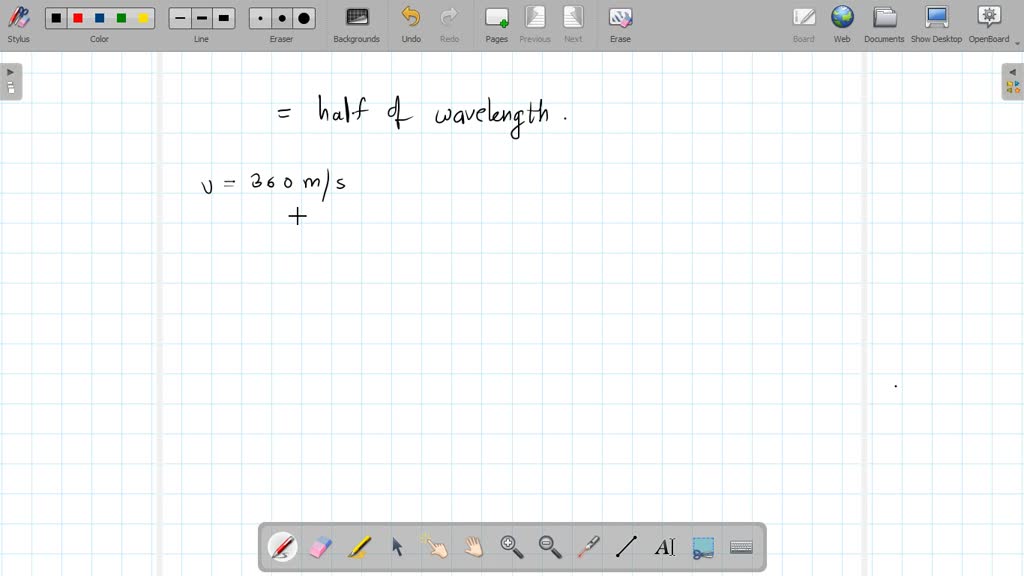 Stylus Color Line Eraser Backgrounds Undo Redo Pages Previous Next Erase Board Web Documents Show Desktop OpenBoard
= half of wavelength.
v = 360 m/s
AI